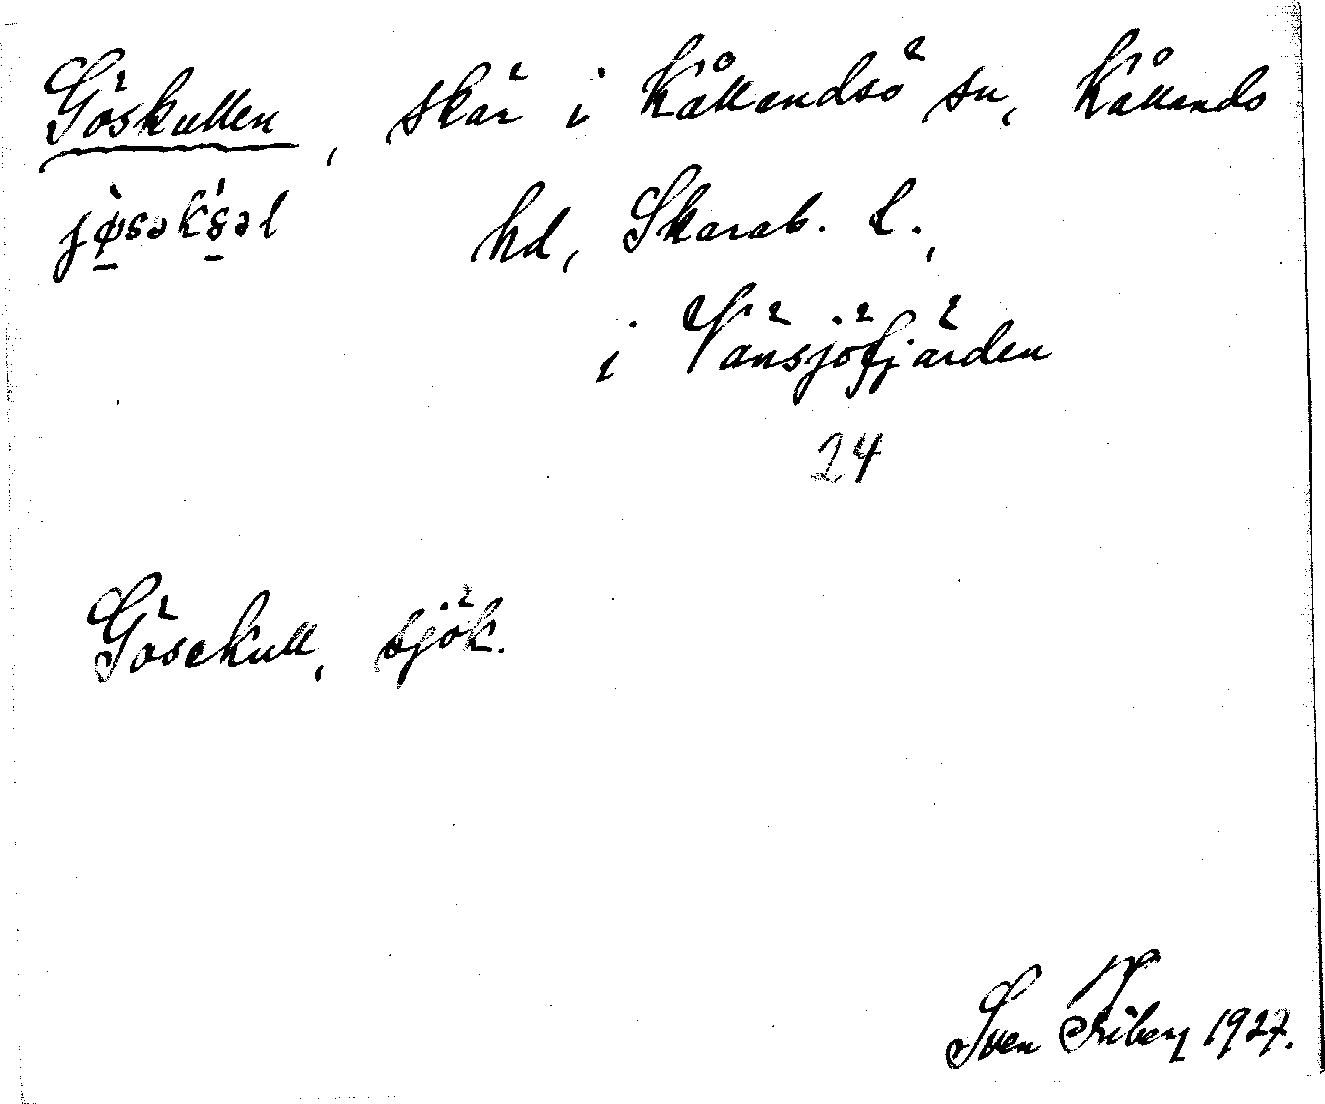 Göskullen, skär i Kållandsö sn, Kållands
hd, Skarab. l.,
i Vänsjöfjärden
24
Gösekull, sjök.
Sven Friberg 1927.